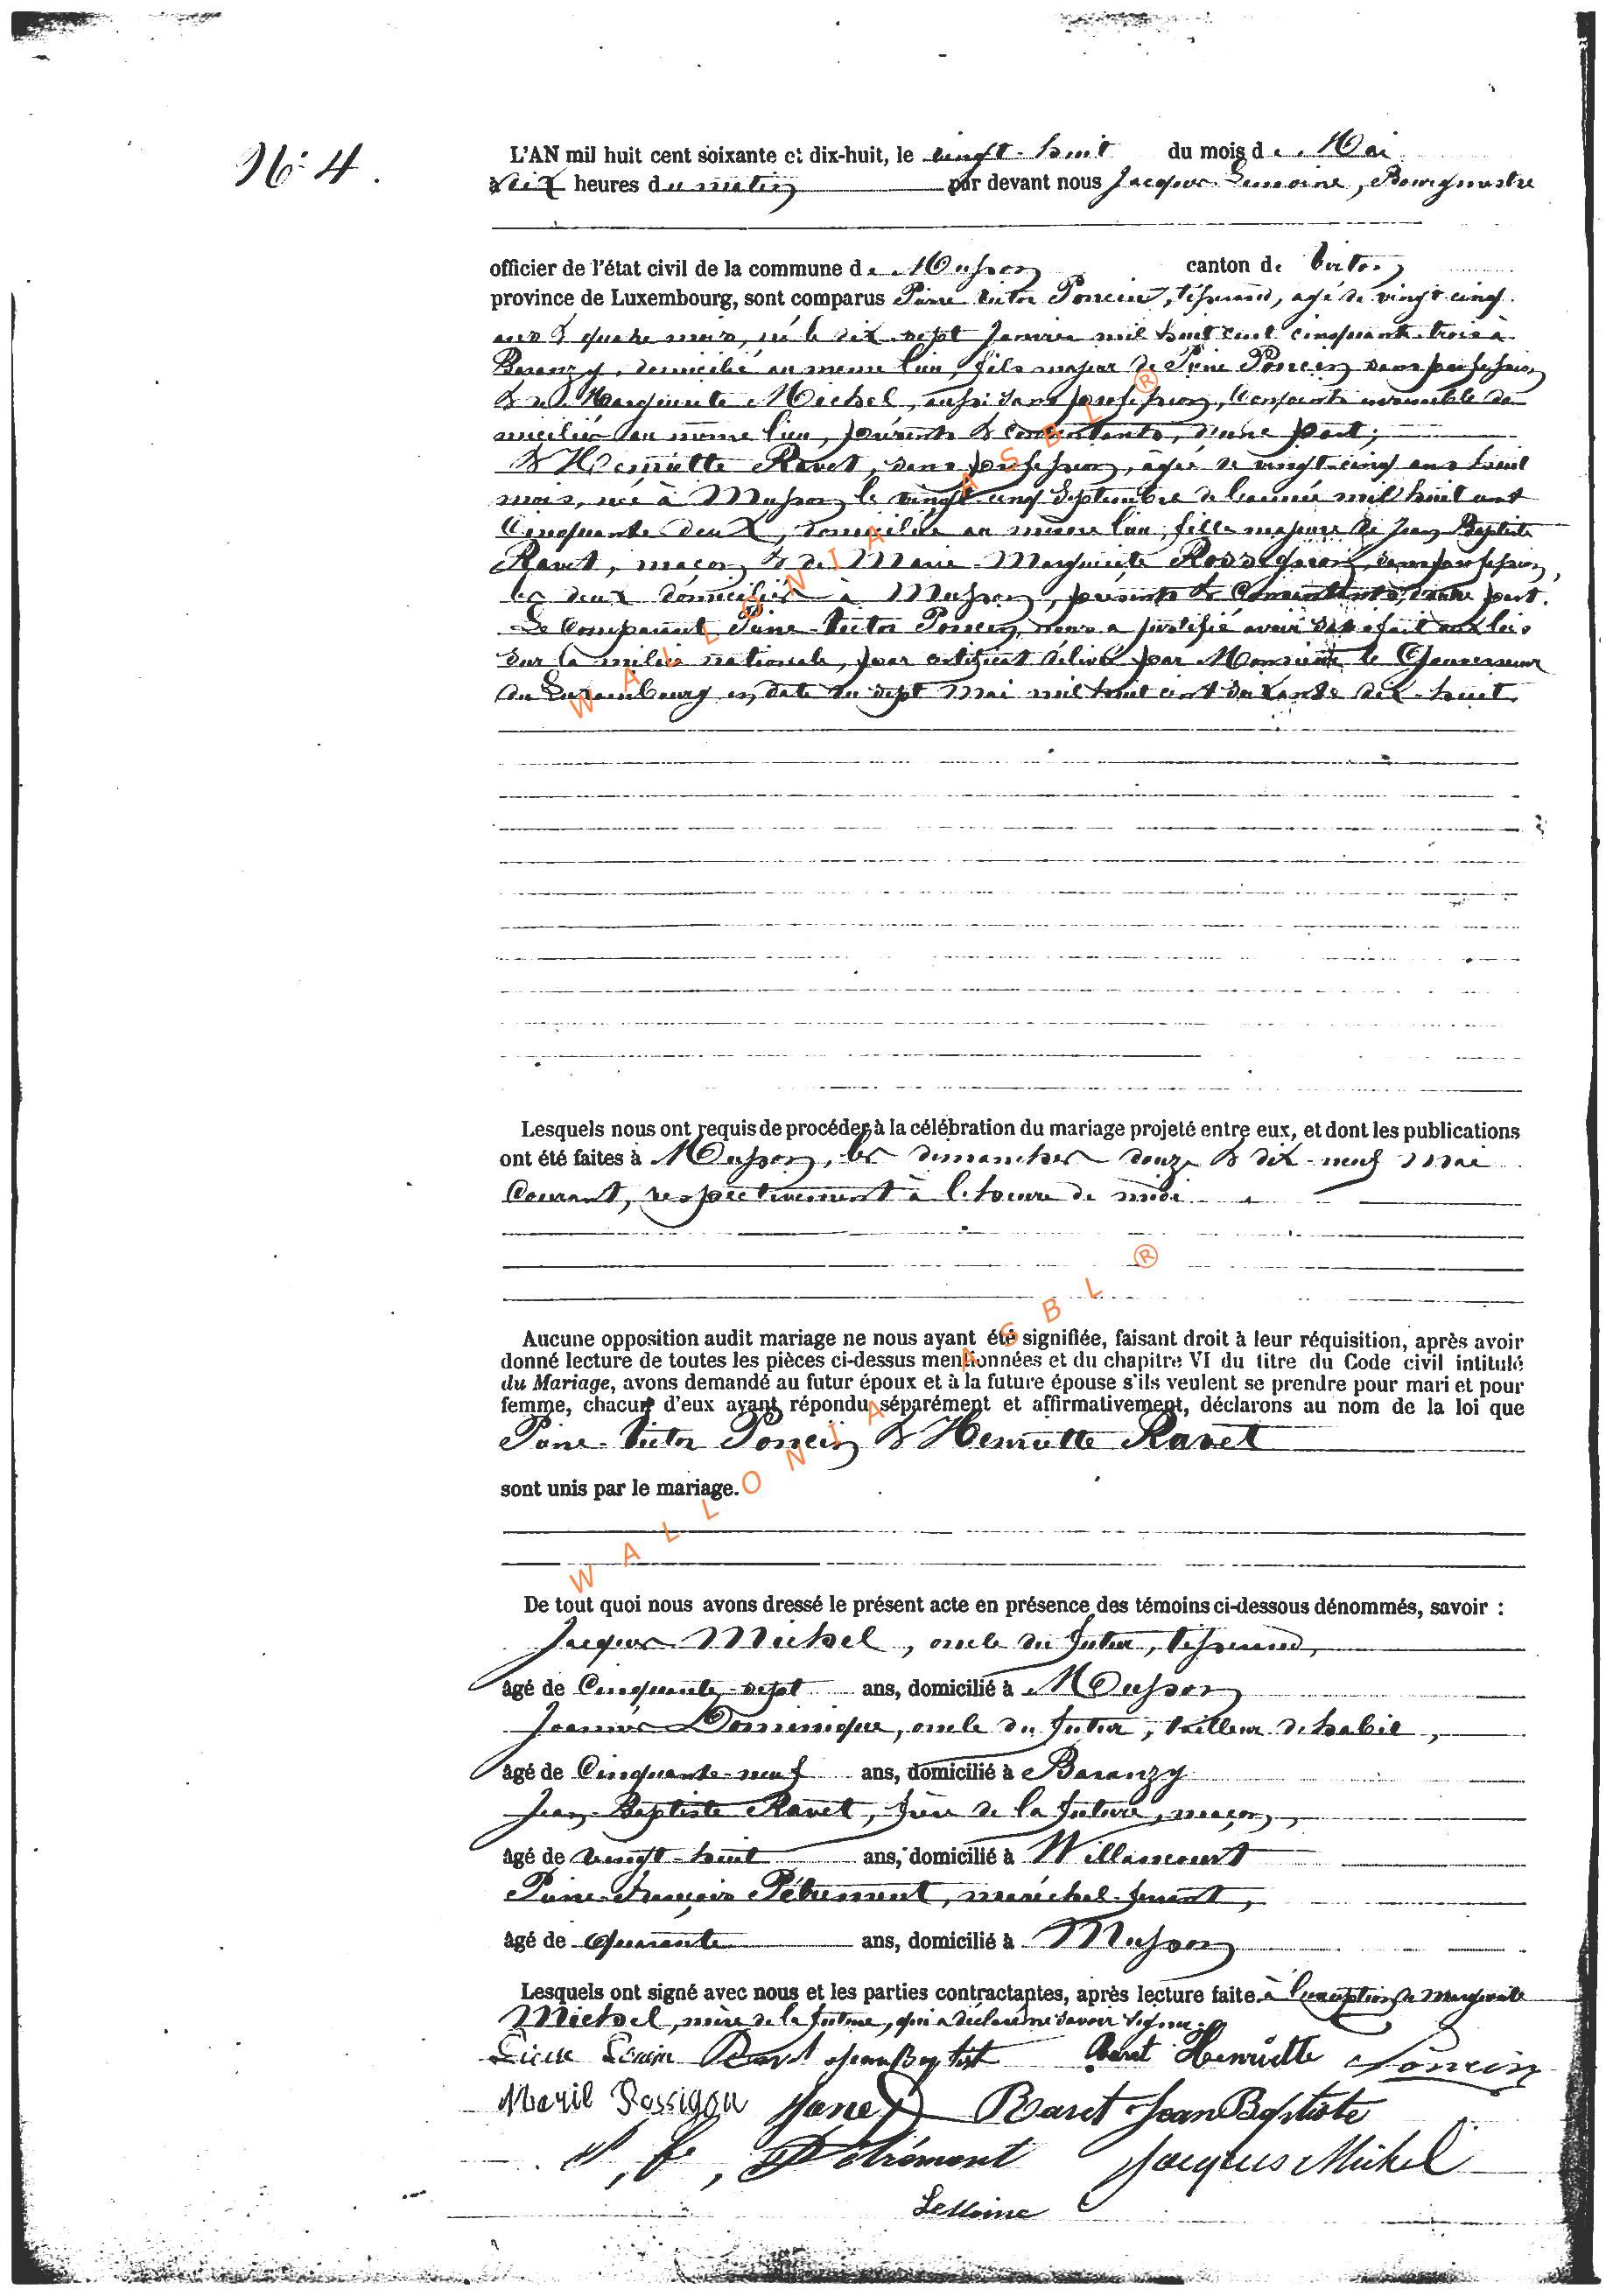 N° 4.
L'AN mil huit cent soixante et dix-huit, le vingt-huit du mois de Mai
à dix heures du matin par devant nous Jacques Lemoine, Bourgmestre
officier de l'état civil de la commune de Musson canton de Virton
province de Luxembourg, sont comparus Pierre Victor Poncin, tisserand, agé de vingt cinq
ans & quatre mois, né le dix-sept Janvier mil huit cent cinquante-trois à
Baranzy, domicilié au même lieu, fils majeur de Pierre Poncin sans profession
& de Marguerite Michel, aussi sans profession, conjoints ensemble do
miciliés au même lieu, présents & consentants, d'une part;
& Henriette Ravet, sans profession, âgée de vingt-cinq ans huit
mois, née à Musson le vingt cinq Septembre de l'année mil huit cent
cinquante deux, domiciliée au même lieu, fille majeure de Jean Baptiste
Ravet, maçon & de Marie-Marguerite Rossignon, sans profession,
les deux domiciliés à Musson, présents & consentants, d'autre part.
Le comparant Pierre-Victor Poncin, nous a justifié avoir satisfait aux lois
sur la milice nationale, par certificat délivré par Monsieur le Gouverneur
du Luxembourg en date du sept Mai mil huit cent soixante dix-huit.
Lesquels nous ont requis de procéder à la célébration du mariage projeté entre eux, et dont les publications
ont été faites à Musson, les dimanches douze & dix-neuf Mai
courant, respectivement à l'heure de midi.
Aucune opposition audit mariage ne nous ayant été signifiée, faisant droit à leur réquisition, après avoir
donné lecture de toutes les pièces ci-dessus mentionnées et du chapitre VI du titre du Code civil intitulé
du Mariage, avons demandé au futur époux et à la future épouse s'ils veulent se prendre pour mari et pour
femme, chacun d'eux ayant répondu séparément et affirmativement, déclarons au nom de la loi que
Pierre-Victor Poncin & Henriette Ravet
sont unis par le mariage.
De tout quoi nous avons dressé le présent acte en présence des témoins ci-dessous dénommés, savoir :
Jacques Michel, oncle du futur, tisserand,
âgé de Cinquante-sept ans, domicilié à Musson
Dominique, oncle du futur, tailleur d'habit,
âgé de Cinquante-neuf ans, domicilié à Baranzy
Jean-Baptiste Ravet, frère de la future, maçon,
âgé de vingt-huit ans, domicilié à Willancourt
Pierre-François Pétrement, maréchal-ferrant,
âgé de quarante ans, domicilié à Musson
Lesquels ont signé avec nous et les parties contractantes, après lecture faite à l'exception de Marguerite
Michel, mère de la future, qui a déclaré ne savoir signer.
Ravet Jean Baptist Ravet Henriette Poncin
Rossignon Ravet Jean Baptiste
P, f, Pétrement Jacques Michel
Lemoine
WALLONIA ASBL ®
WALLONIA ASBL ®